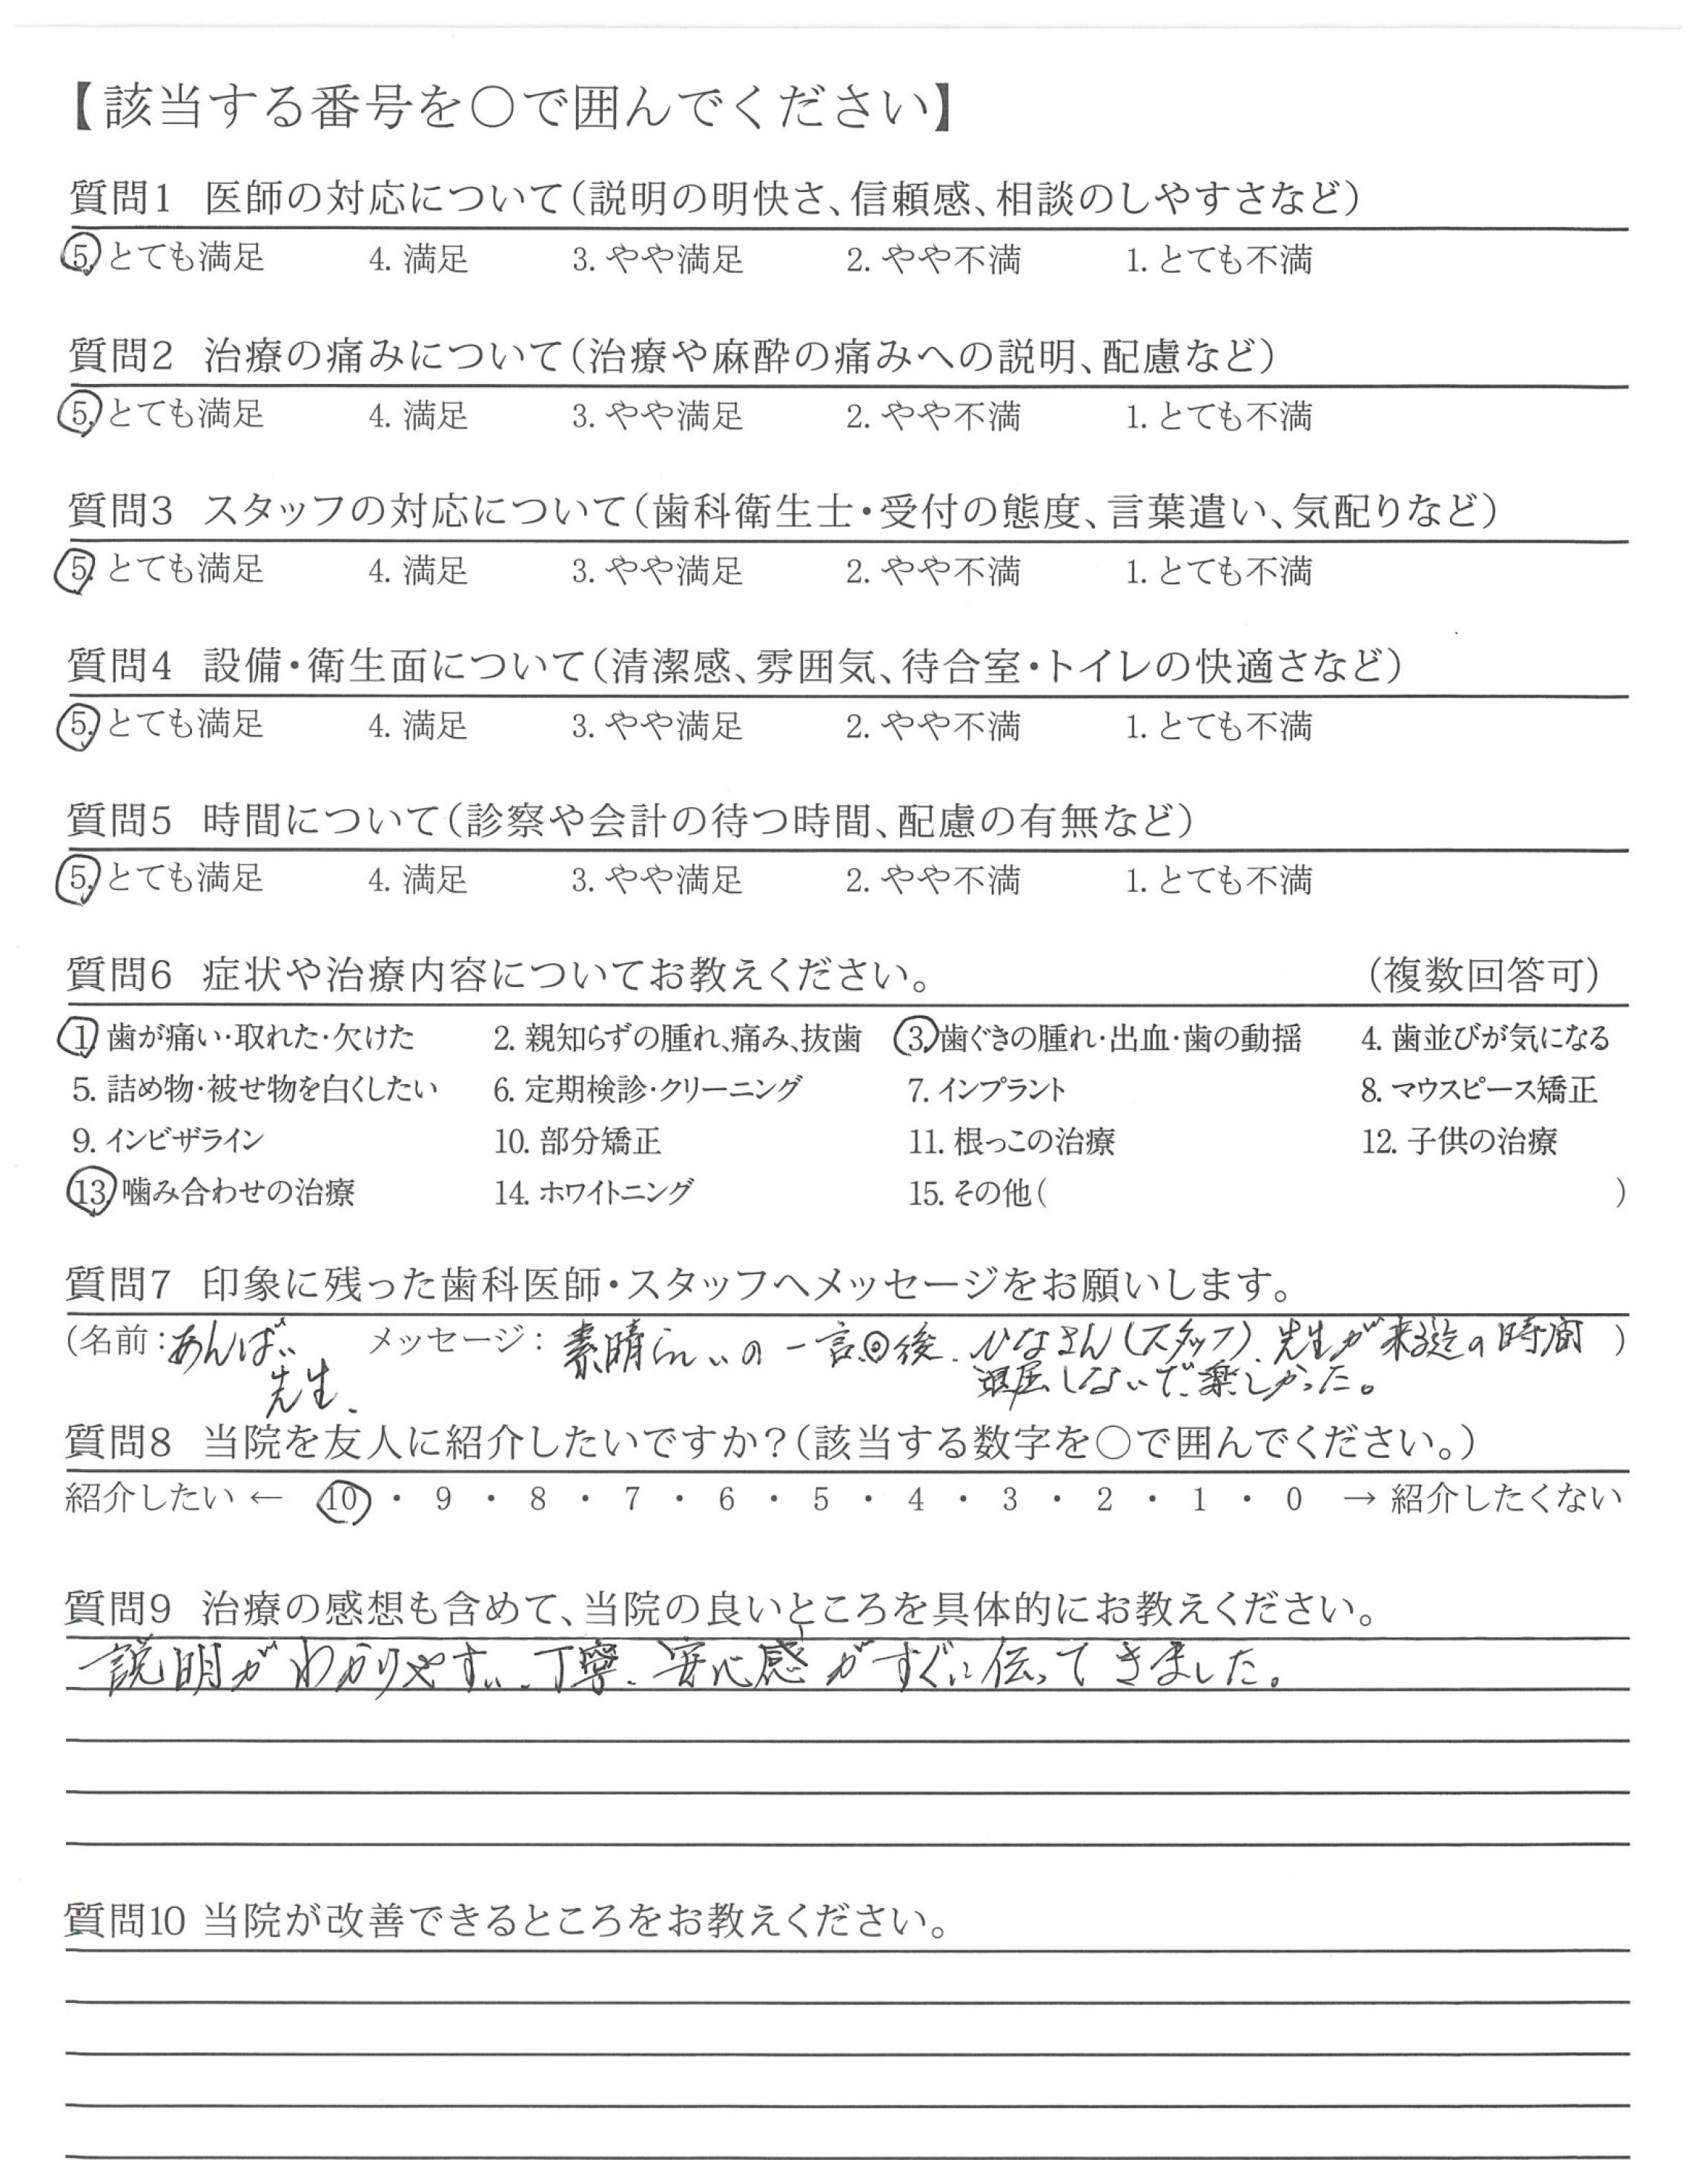 【該当する番号を○で囲んでください】
質問1 医師の対応について(説明の明快さ、信頼感、相談のしやすさなど)
5. とても満足 4. 満足 3. やや満足 2. やや不満 1. とても不満
質問2 治療の痛みについて(治療や麻酔の痛みへの説明、配慮など)
5. とても満足 4. 満足 3. やや満足 2. やや不満 1. とても不満
質問3 スタッフの対応について(歯科衛生士・受付の態度、言葉遣い、気配りなど)
5. とても満足 4. 満足 3. やや満足 2. やや不満 1. とても不満
質問4 設備・衛生面について(清潔感、雰囲気、待合室・トイレの快適さなど)
5. とても満足 4. 満足 3. やや満足 2. やや不満 1. とても不満
質問5 時間について(診察や会計の待つ時間、配慮の有無など)
5. とても満足 4. 満足 3. やや満足 2. やや不満 1. とても不満
質問6 症状や治療内容についてお教えください。 (複数回答可)
1. 歯が痛い・取れた・欠けた 2. 親知らずの腫れ、痛み、抜歯 3. 歯ぐきの腫れ・出血・歯の動揺 4. 歯並びが気になる
5. 詰め物・被せ物を白くしたい 6. 定期検診・クリーニング 7. インプラント 8. マウスピース矯正
9. インビザライン 10. 部分矯正 11. 根っこの治療 12. 子供の治療
13. 噛み合わせの治療 14. ホワイトニング 15. その他( )
質問7 印象に残った歯科医師・スタッフへメッセージをお願いします。
(名前:あんばい メッセージ: 素晴らしいの一言◎後、ひなさん(スタッフ)、先生が来る迄の時間 )
先生、 退屈しないで、楽しかった。
質問8 当院を友人に紹介したいですか?(該当する数字を○で囲んでください。)
紹介したい ← 10 ・ 9 ・ 8 ・ 7 ・ 6 ・ 5 ・ 4 ・ 3 ・ 2 ・ 1 ・ 0 → 紹介したくない
質問9 治療の感想も含めて、当院の良いところを具体的にお教えください。
説明がわかりやすい、丁寧、安心感がすぐに伝ってきました。
質問10 当院が改善できるところをお教えください。